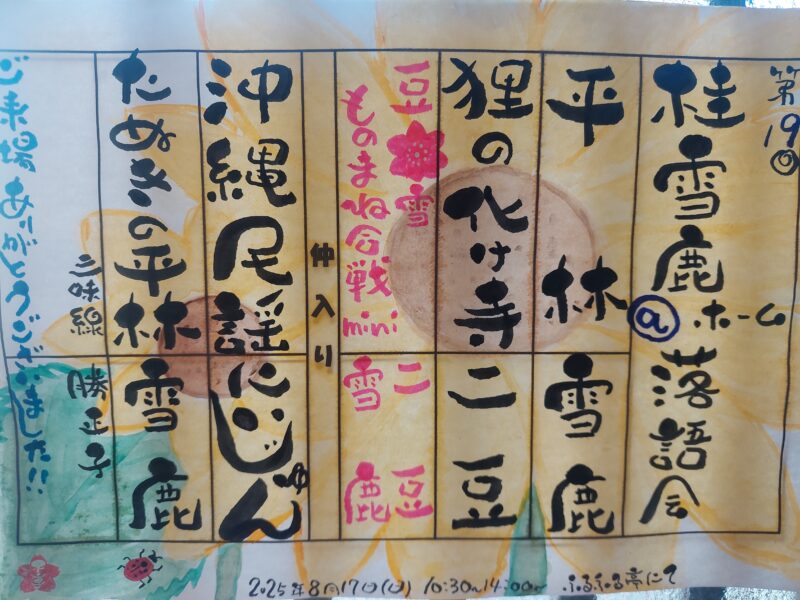 第19回
桂雪鹿@ホーム落語会
平林 雪鹿
狸の化け寺 二豆
豆雪ものまね合戦mini 二豆 雪鹿
仲入り
沖縄民謡 にいじゅん
たぬきの平林 雪鹿
三味線 勝正子
ご来場ありがとうございました!!
2025年8月17日(日) 10:30~14:00 ふるふる亭にて